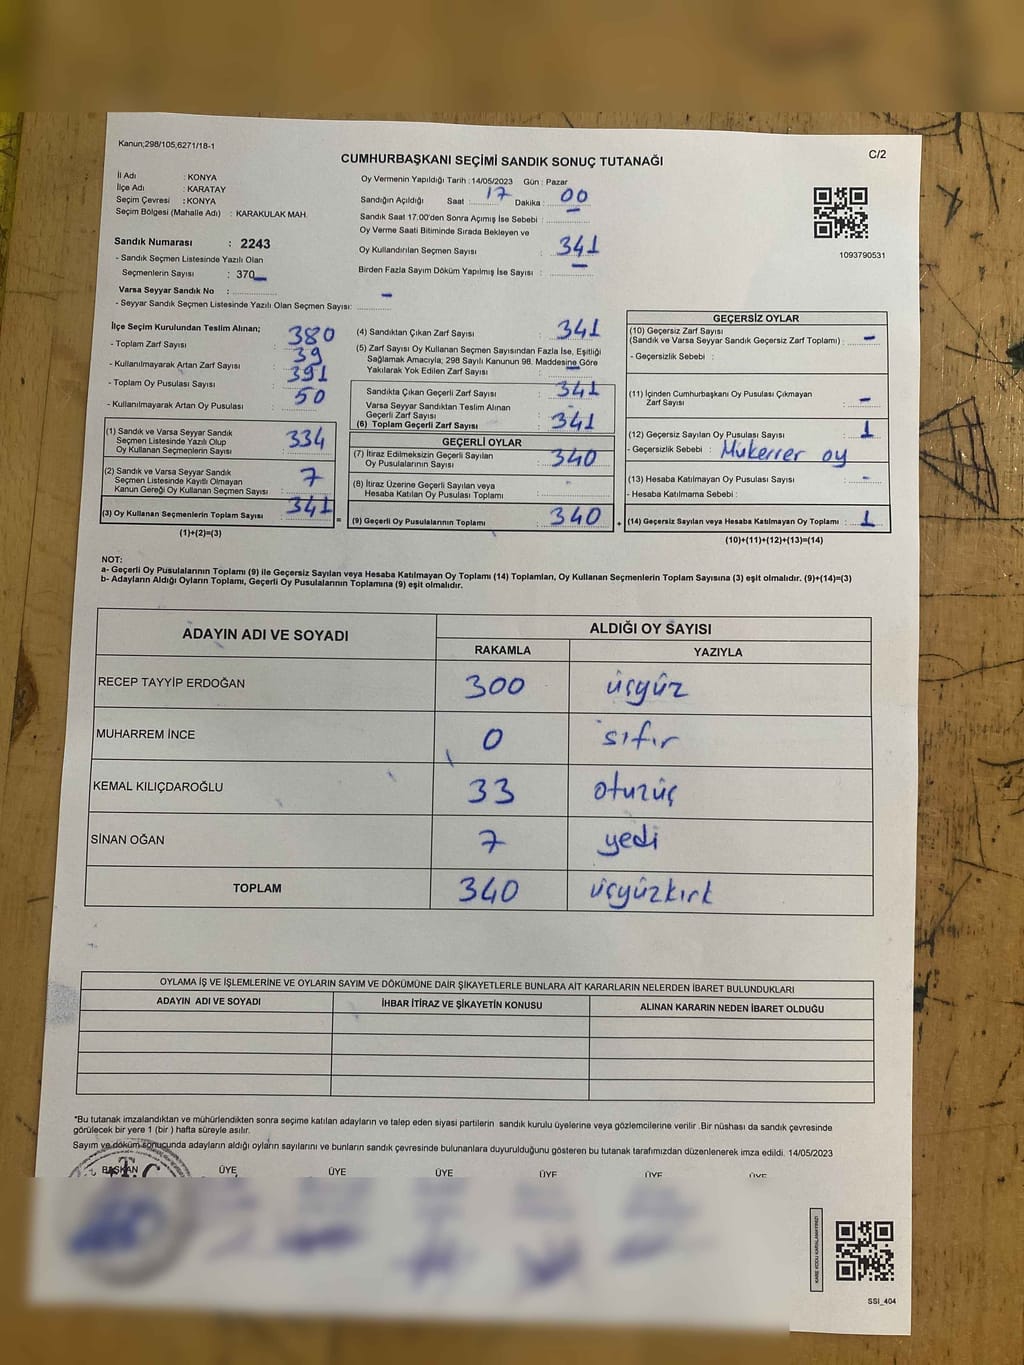 Kanun;298/105,6271/18-1
C/2
CUMHURBAŞKANI SEÇİMİ SANDIK SONUÇ TUTANAĞI
İl Adı : KONYA
İlçe Adı : KARATAY
Seçim Çevresi : KONYA
Seçim Bölgesi (Mahalle Adı) : KARAKULAK MAH.
Sandık Numarası : 2243
- Sandık Seçmen Listesinde Yazılı Olan
Seçmenlerin Sayısı : 370
Varsa Seyyar Sandık No : -
- Seyyar Sandık Seçmen Listesinde Yazılı Olan Seçmen Sayısı:
Oy Vermenin Yapıldığı Tarih :14/05/2023 Gün : Pazar
Sandığın Açıldığı Saat : 17 Dakika : 00
Sandık Saat 17:00'den Sonra Açımış İse Sebebi : -
Oy Verme Saati Bitiminde Sırada Bekleyen ve
Oy Kullandırılan Seçmen Sayısı : 341
Birden Fazla Sayım Döküm Yapılmış İse Sayısı : -
1093790531
İlçe Seçim Kurulundan Teslim Alınan;
- Toplam Zarf Sayısı : 380
- Kullanılmayarak Artan Zarf Sayısı : 39
- Toplam Oy Pusulası Sayısı : 391
- Kullanılmayarak Artan Oy Pusulası : 50
(1) Sandık ve Varsa Seyyar Sandık
Seçmen Listesinde Yazılı Olup
Oy Kullanan Seçmenlerin Sayısı : 334
(2) Sandık ve Varsa Seyyar Sandık
Seçmen Listesinde Kayıtlı Olmayan
Kanun Gereği Oy Kullanan Seçmen Sayısı : 7
(3) Oy Kullanan Seçmenlerin Toplam Sayısı : 341
(1)+(2)=(3)
(4) Sandıktan Çıkan Zarf Sayısı : 341
(5) Zarf Sayısı Oy Kullanan Seçmen Sayısından Fazla İse, Eşitliği
Sağlamak Amacıyla, 298 Sayılı Kanunun 98. Maddesine Göre
Yakılarak Yok Edilen Zarf Sayısı : -
Sandıkta Çıkan Geçerli Zarf Sayısı : 341
Varsa Seyyar Sandıktan Teslim Alınan
Geçerli Zarf Sayısı : -
(6) Toplam Geçerli Zarf Sayısı : 341
GEÇERLİ OYLAR
(7) İtiraz Edilmeksizin Geçerli Sayılan
Oy Pusulalarının Sayısı : 340
(8) İtiraz Üzerine Geçerli Sayılan veya
Hesaba Katılan Oy Pusulası Toplamı : -
= (9) Geçerli Oy Pusulalarının Toplamı : 340
GEÇERSİZ OYLAR
(10) Geçersiz Zarf Sayısı
(Sandık ve Varsa Seyyar Sandık Geçersiz Zarf Toplamı) : -
- Geçersizlik Sebebi :
(11) İçinden Cumhurbaşkanı Oy Pusulası Çıkmayan
Zarf Sayısı : -
(12) Geçersiz Sayılan Oy Pusulası Sayısı : 1
- Geçersizlik Sebebi : Mükerrer oy
(13) Hesaba Katılmayan Oy Pusulası Sayısı : -
- Hesaba Katılmama Sebebi :
+ (14) Geçersiz Sayılan veya Hesaba Katılmayan Oy Toplamı : 1
(10)+(11)+(12)+(13)=(14)
NOT:
a- Geçerli Oy Pusulasının Toplamı (9) ile Geçersiz Sayılan veya Hesaba Katılmayan Oy Toplamı (14) Toplamları, Oy Kullanan Seçmenlerin Toplam Sayısına (3) eşit olmalıdır. (9)+(14)=(3)
b- Adayların Aldığı Oyların Toplamı, Geçerli Oy Pusulalarının Toplamına (9) eşit olmalıdır.
ADAYIN ADI VE SOYADI ALDIĞI OY SAYISI
RAKAMLA YAZIYLA
RECEP TAYYİP ERDOĞAN 300 üçyüz
MUHARREM İNCE 0 sıfır
KEMAL KILIÇDAROĞLU 33 otuzüç
SİNAN OĞAN 7 yedi
TOPLAM 340 üçyüzkırk
OYLAMA İŞ VE İŞLEMLERİNE VE OYLARIN SAYIM VE DÖKÜMÜNE DAİR ŞİKAYETLERLE BUNLARA AİT KARARLARIN NELERDEN İBARET BULUNDUKLARI
ADAYIN ADI VE SOYADI İHBAR İTİRAZ VE ŞİKAYETİN KONUSU ALINAN KARARIN NEDEN İBARET OLDUĞU
*Bu tutanak imzalandıktan ve mühürlendikten sonra seçime katılan adayların ve talep eden siyasi partilerin sandık kurulu üyelerine veya gözlemcilerine verilir .Bir nüshası da sandık çevresinde
görülecek bir yere 1 (bir ) hafta süreyle asılır.
Sayım ve döküm sonucunda adayların aldığı oyların sayılarını ve bunların sandık çevresinde bulunanlara duyurulduğunu gösteren bu tutanak tarafımızdan düzenlenerek imza edildi. 14/05/2023
BAŞKAN ÜYE ÜYE ÜYE ÜYE ÜYE ÜYE
T.C
SSI_404